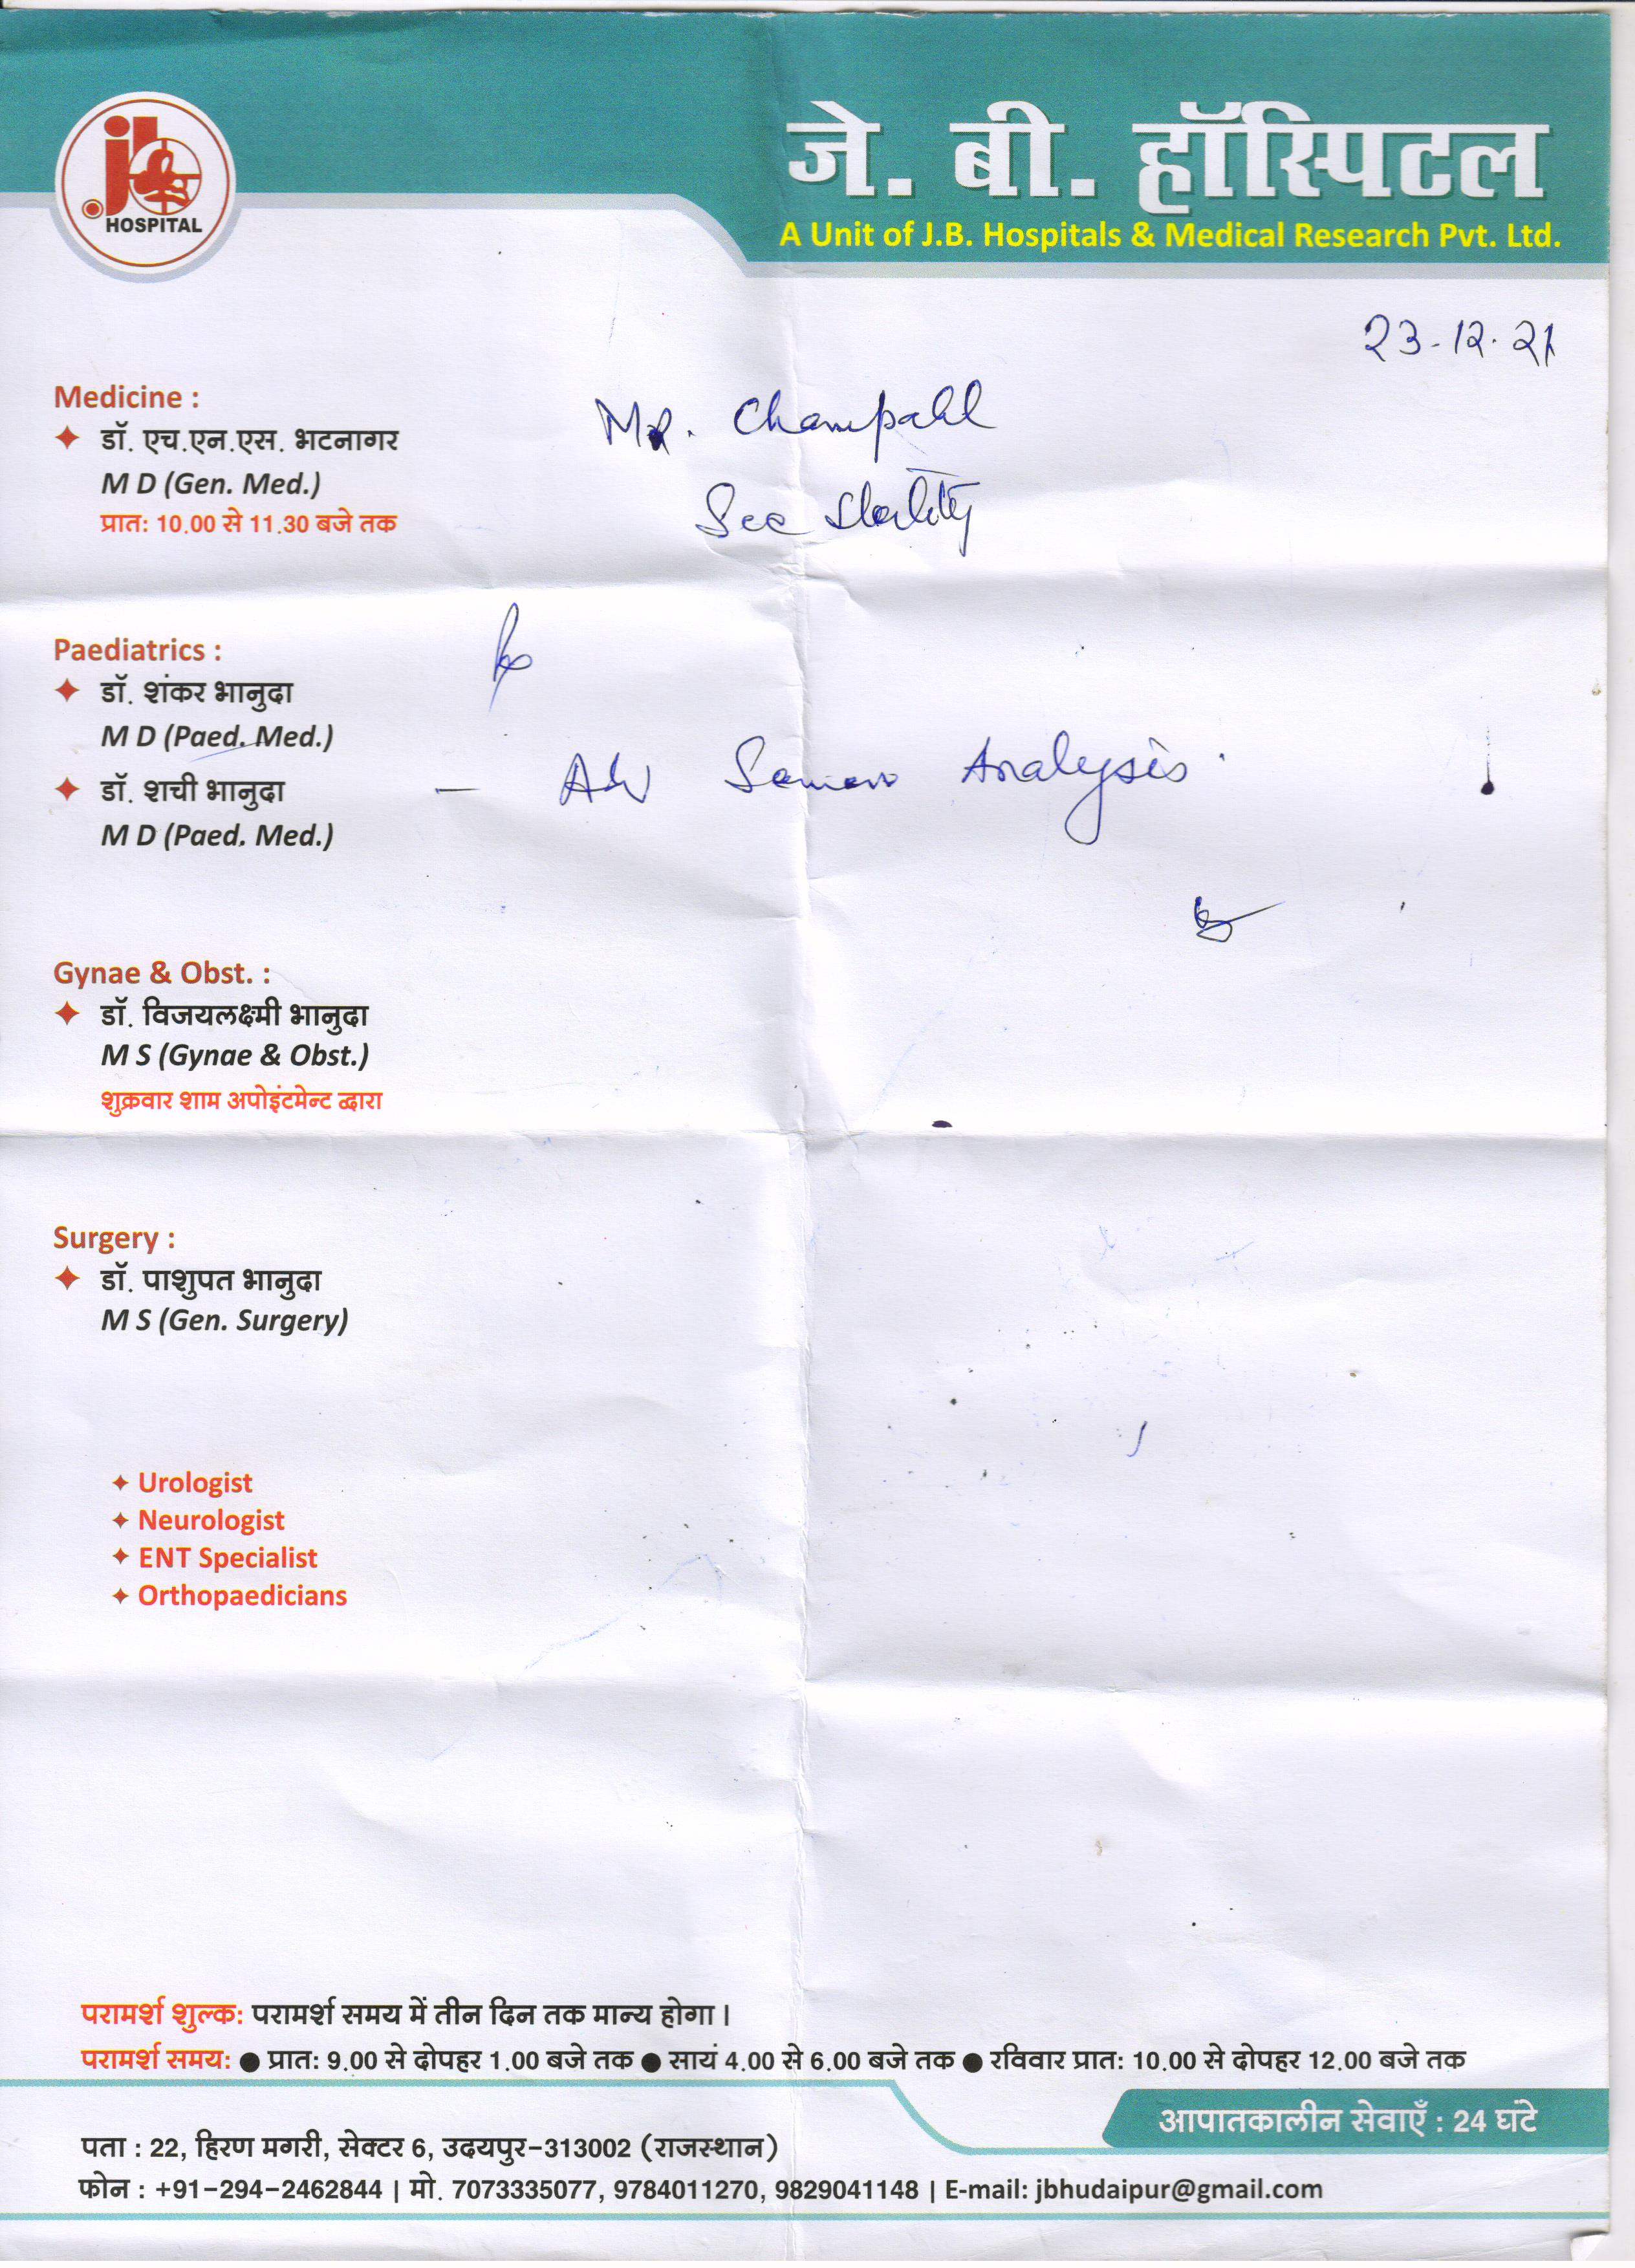 जे. बी. हॉस्पिटल
A Unit of J.B. Hospitals & Medical Research Pvt. Ltd.
HOSPITAL
23-12-21
Mr. Champalal
Sec Sterlity
Adv Semen Analysis.
Medicine :
डॉ. एच.एन.एस. भटनागर
M D (Gen. Med.)
प्रातः 10.00 से 11.30 बजे तक
Paediatrics :
डॉ. शंकर भानुदा
M D (Paed. Med.)
डॉ. शची भानुदा
M D (Paed. Med.)
Gynae & Obst. :
डॉ. विजयलक्ष्मी भानुदा
M S (Gynae & Obst.)
शुक्रवार शाम अपोइंटमेन्ट द्वारा
Surgery :
डॉ. पाशुपत भानुदा
M S (Gen. Surgery)
Urologist
Neurologist
ENT Specialist
Orthopaedicians
परामर्श शुल्क: परामर्श समय में तीन दिन तक मान्य होगा।
परामर्श समय: ● प्रातः 9.00 से दोपहर 1.00 बजे तक ● सायं 4.00 से 6.00 बजे तक ● रविवार प्रातः 10.00 से दोपहर 12.00 बजे तक
आपातकालीन सेवाएँ : 24 घंटे
पता : 22, हिरण मगरी, सेक्टर 6, उदयपुर-313002 (राजस्थान)
फोन : +91-294-2462844 | मो. 7073335077, 9784011270, 9829041148 | E-mail: jbhudaipur@gmail.com